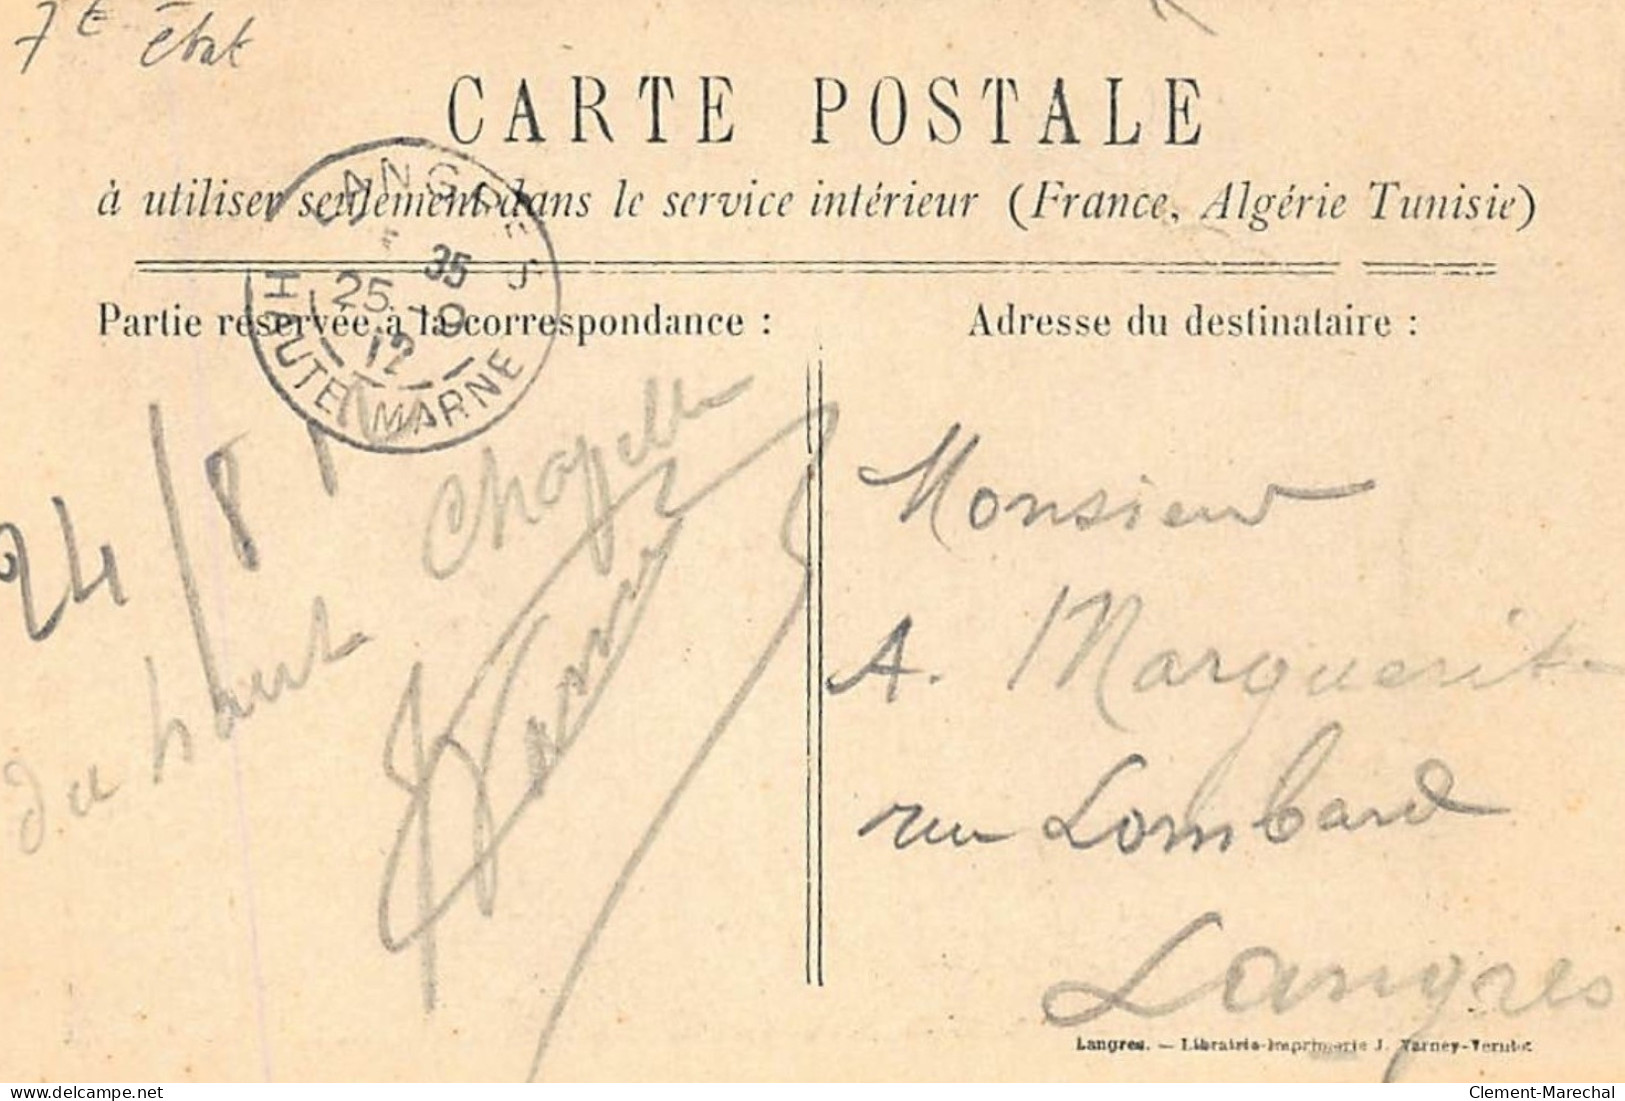 7e État
CARTE POSTALE
à utiliser seulement dans le service intérieur (France, Algérie Tunisie)
LANGRES
35
25 - 9
12
HAUTE MARNE
Partie réservée à la correspondance :
Adresse du destinataire :
24/8 12
du haut Chapelle
Monsieur
A. Marguerite
rue Lombard
Langres
Langres. — Librairie-Imprimerie J. Varney-Verniot
Clement-Marechal